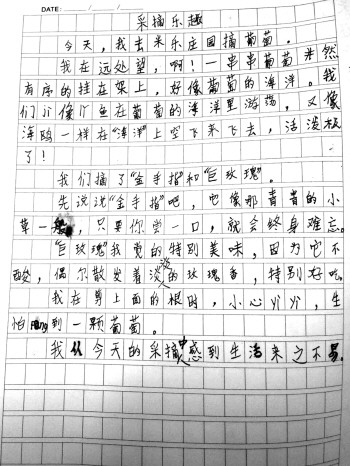 DATE: / /
采摘乐趣
今天，我去米乐庄园摘葡萄。
我在远处望，啊！一串串葡萄井然
有序的挂在架上，好像葡萄的海洋。我
们小像小鱼在葡萄的海洋里游荡，又像
海鸥一样在“海洋”上空飞来飞去，活泼极
了！
我们摘了“金手指”和“巨玫瑰”。
先说说“金手指”吧，它像那青青的小
草一般，只要你尝一口，就会终身难忘。
“巨玫瑰”我觉的特别美味，因为它不
酸，偶尔散发着淡淡的玫瑰香，特别好吃。
我在剪上面的根时，小心小小，生
怕pèng到一颗葡萄。
我从今天的采摘中感到生活来之不易。